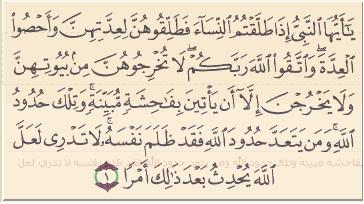 يَٰٓأَيُّهَا ٱلنَّبِيُّ إِذَا طَلَّقۡتُمُ ٱلنِّسَآءَ فَطَلِّقُوهُنَّ لِعِدَّتِهِنَّ وَأَحۡصُواْ
ٱلۡعِدَّةَۖ وَٱتَّقُواْ ٱللَّهَ رَبَّكُمۡۖ لَا تُخۡرِجُوهُنَّ مِنۢ بُيُوتِهِنَّ
وَلَا يَخۡرُجۡنَ إِلَّآ أَن يَأۡتِينَ بِفَٰحِشَةٖ مُّبَيِّنَةٖۚ وَتِلۡكَ حُدُودُ
ٱللَّهِۚ وَمَن يَتَعَدَّ حُدُودَ ٱللَّهِ فَقَدۡ ظَلَمَ نَفۡسَهُۥۚ لَا تَدۡرِي لَعَلَّ
ٱللَّهَ يُحۡدِثُ بَعۡدَ ذَٰلِكَ أَمۡرٗا ١